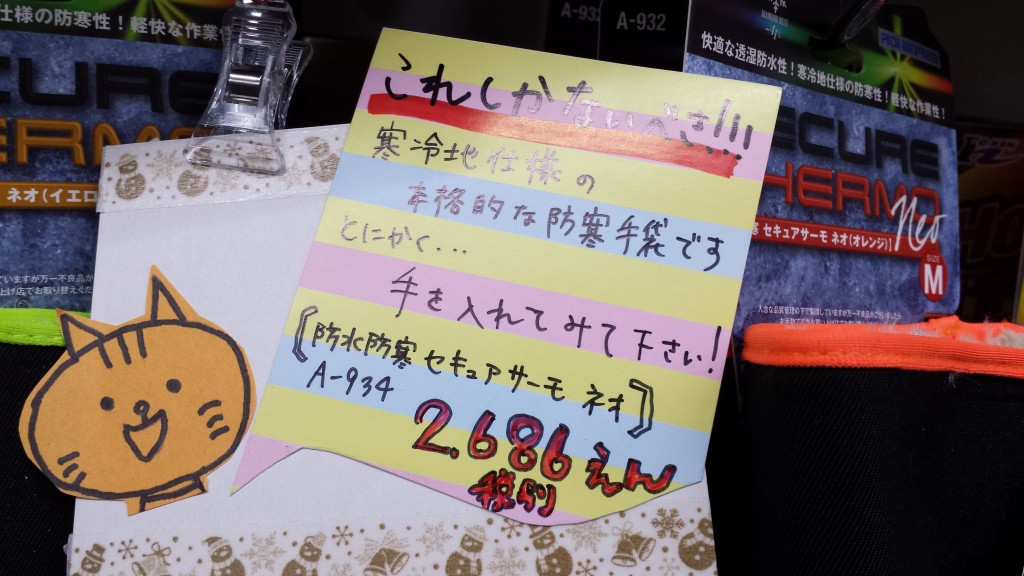 仕様の防寒性！軽快な作業性
CURE
ERMO
ネオ(イエロ
A-932
A-932
これしかないべさ!!!
寒冷地仕様の
本格的な防寒手袋です
とにかく...
手を入れてみて下さい!
〔防水防寒セキュアサーモ ネオ〕
A-934
2.686えん
税別
快適な透湿防水性！寒冷地仕様の防寒性！軽快な作業性！
ECURE
HERMO
Neo
セキュアサーモ ネオ(オレンジ)】
SIZE
M